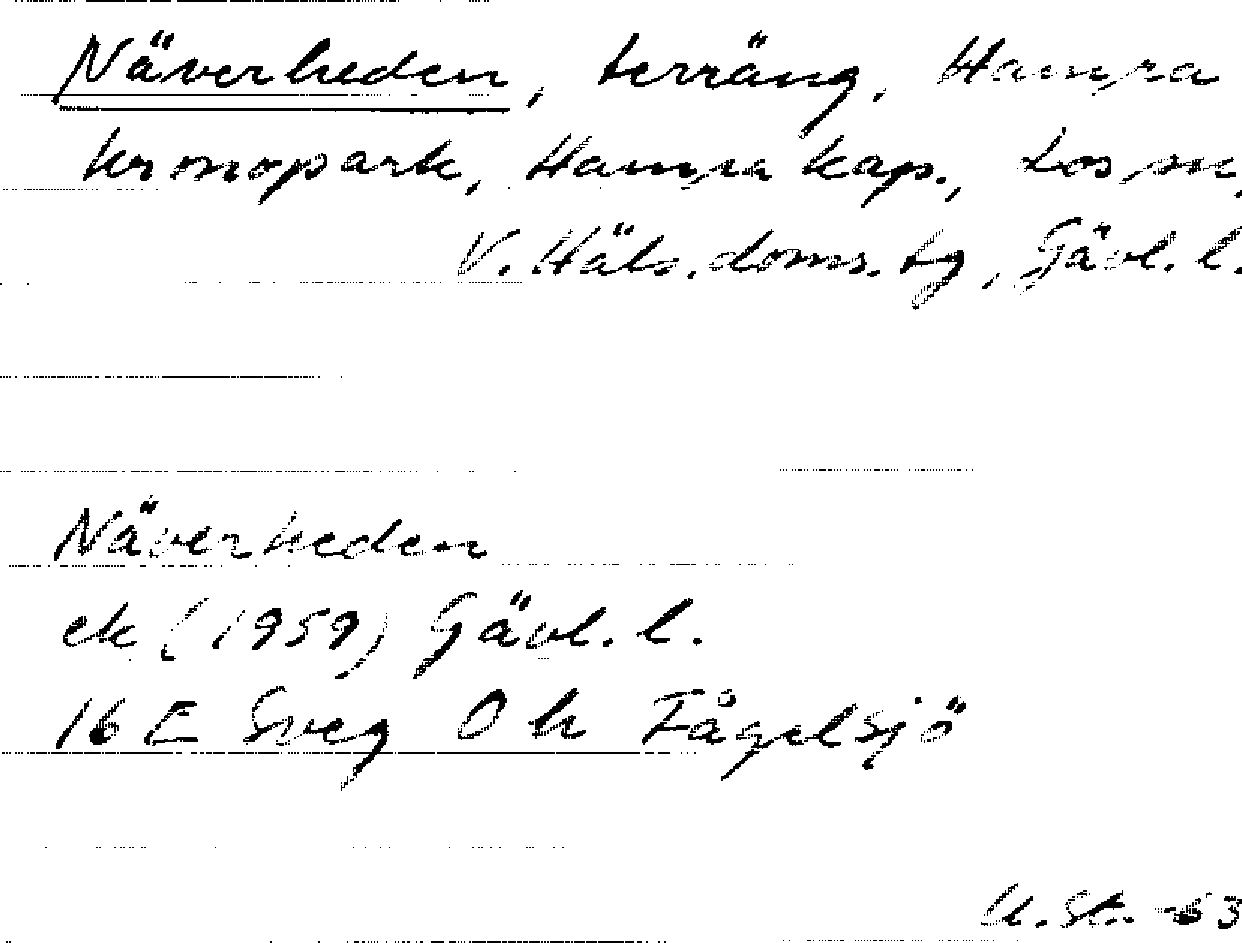 Näverheden, terräng, Hamra
kronopark, Hamra kap., Los sn,
V. Häls. doms. tg, Gävl. l.
Näverheden
ek (1959) Gävl. l.
16 E Sveg 0 h Fågelsjö
U. St. -63